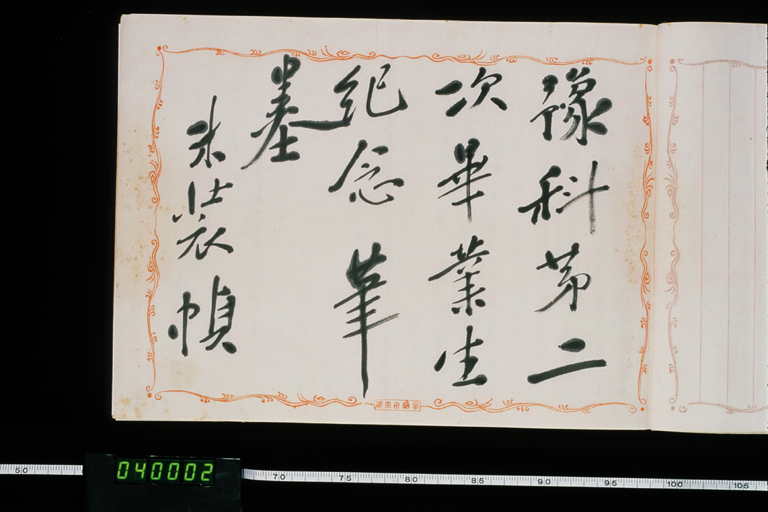 豫科苐二
次畢業生
紀念筆
墨
朱裝幀
040002
50 70 75 80 85 90 95 100 105